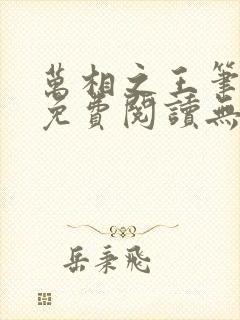 萬相之王筆
免費閱讀無
岳秉飛